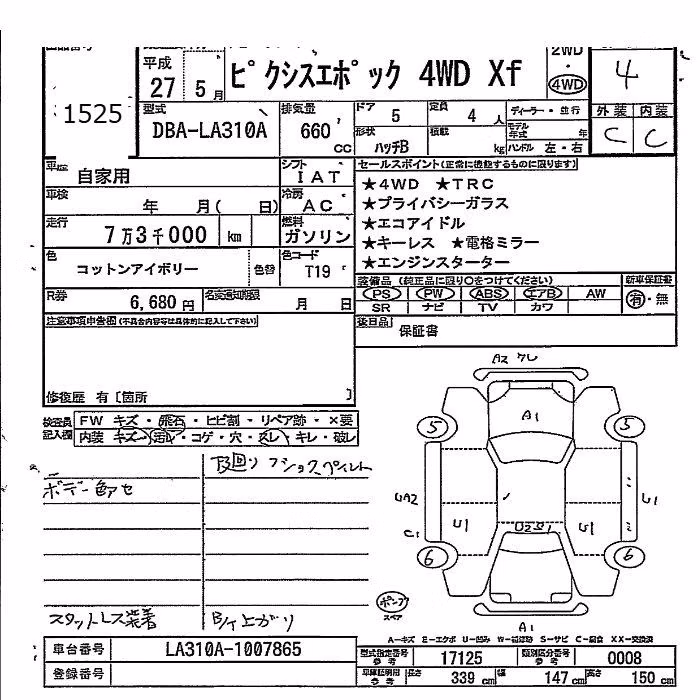 1525
平成 27 5月
ピクシスエポック 4WD Xf
2WD
・
4WD
4
型式 DBA-LA310A
排気量 660 cc
ドア 5
定員 4人
ディーラー・並行
形状 ハッチB
積載 kg
モデル年式 年
ハンドル 左・右
外装 内装
C C
車歴 自家用
シフト IAT
車検 年 月( 日)
冷房 AC
走行 7万3千000 km
燃料 ガソリン
色 コットンアイボリー 色替
色コード T19
R券 6,680円
名変通知期限 月 日
セールスポイント(正常に機能するものに限ります)
★4WD ★TRC
★プライバシーガラス
★エコアイドル
★キーレス ★電格ミラー
★エンジンスターター
装備品 (純正品に限り○をつけてください)
新車保証書
PS PW ABS エアB AW
有・無
SR ナビ TV カワ
後日品 保証書
注意事項申告欄(不具合内容等は具体的に記入して下さい)
修復歴 有〔箇所 〕
検査員記入欄
FW キズ・飛石・ヒビ割・リペア跡・×要
内装 キズ・汚レ・コゲ・穴・スレ・キレ・破レ
下廻り フショクペイント
ボデー色アセ
スタットレス装着
B/T上がり
A2
A1
5 5
UA2
U1
C1
U1
U2
U1
6 6
ポンプ
スペア
A1
A-キズ E-エクボ U-凹み W-補修跡 S-サビ C-腐食 XX-交換済
車台番号 LA310A-1007865
登録番号
型式指定番号 参考 17125
類別区分番号 参考 0008
車庫証明用 参考 長さ 339cm 幅 147cm 高さ 150cm